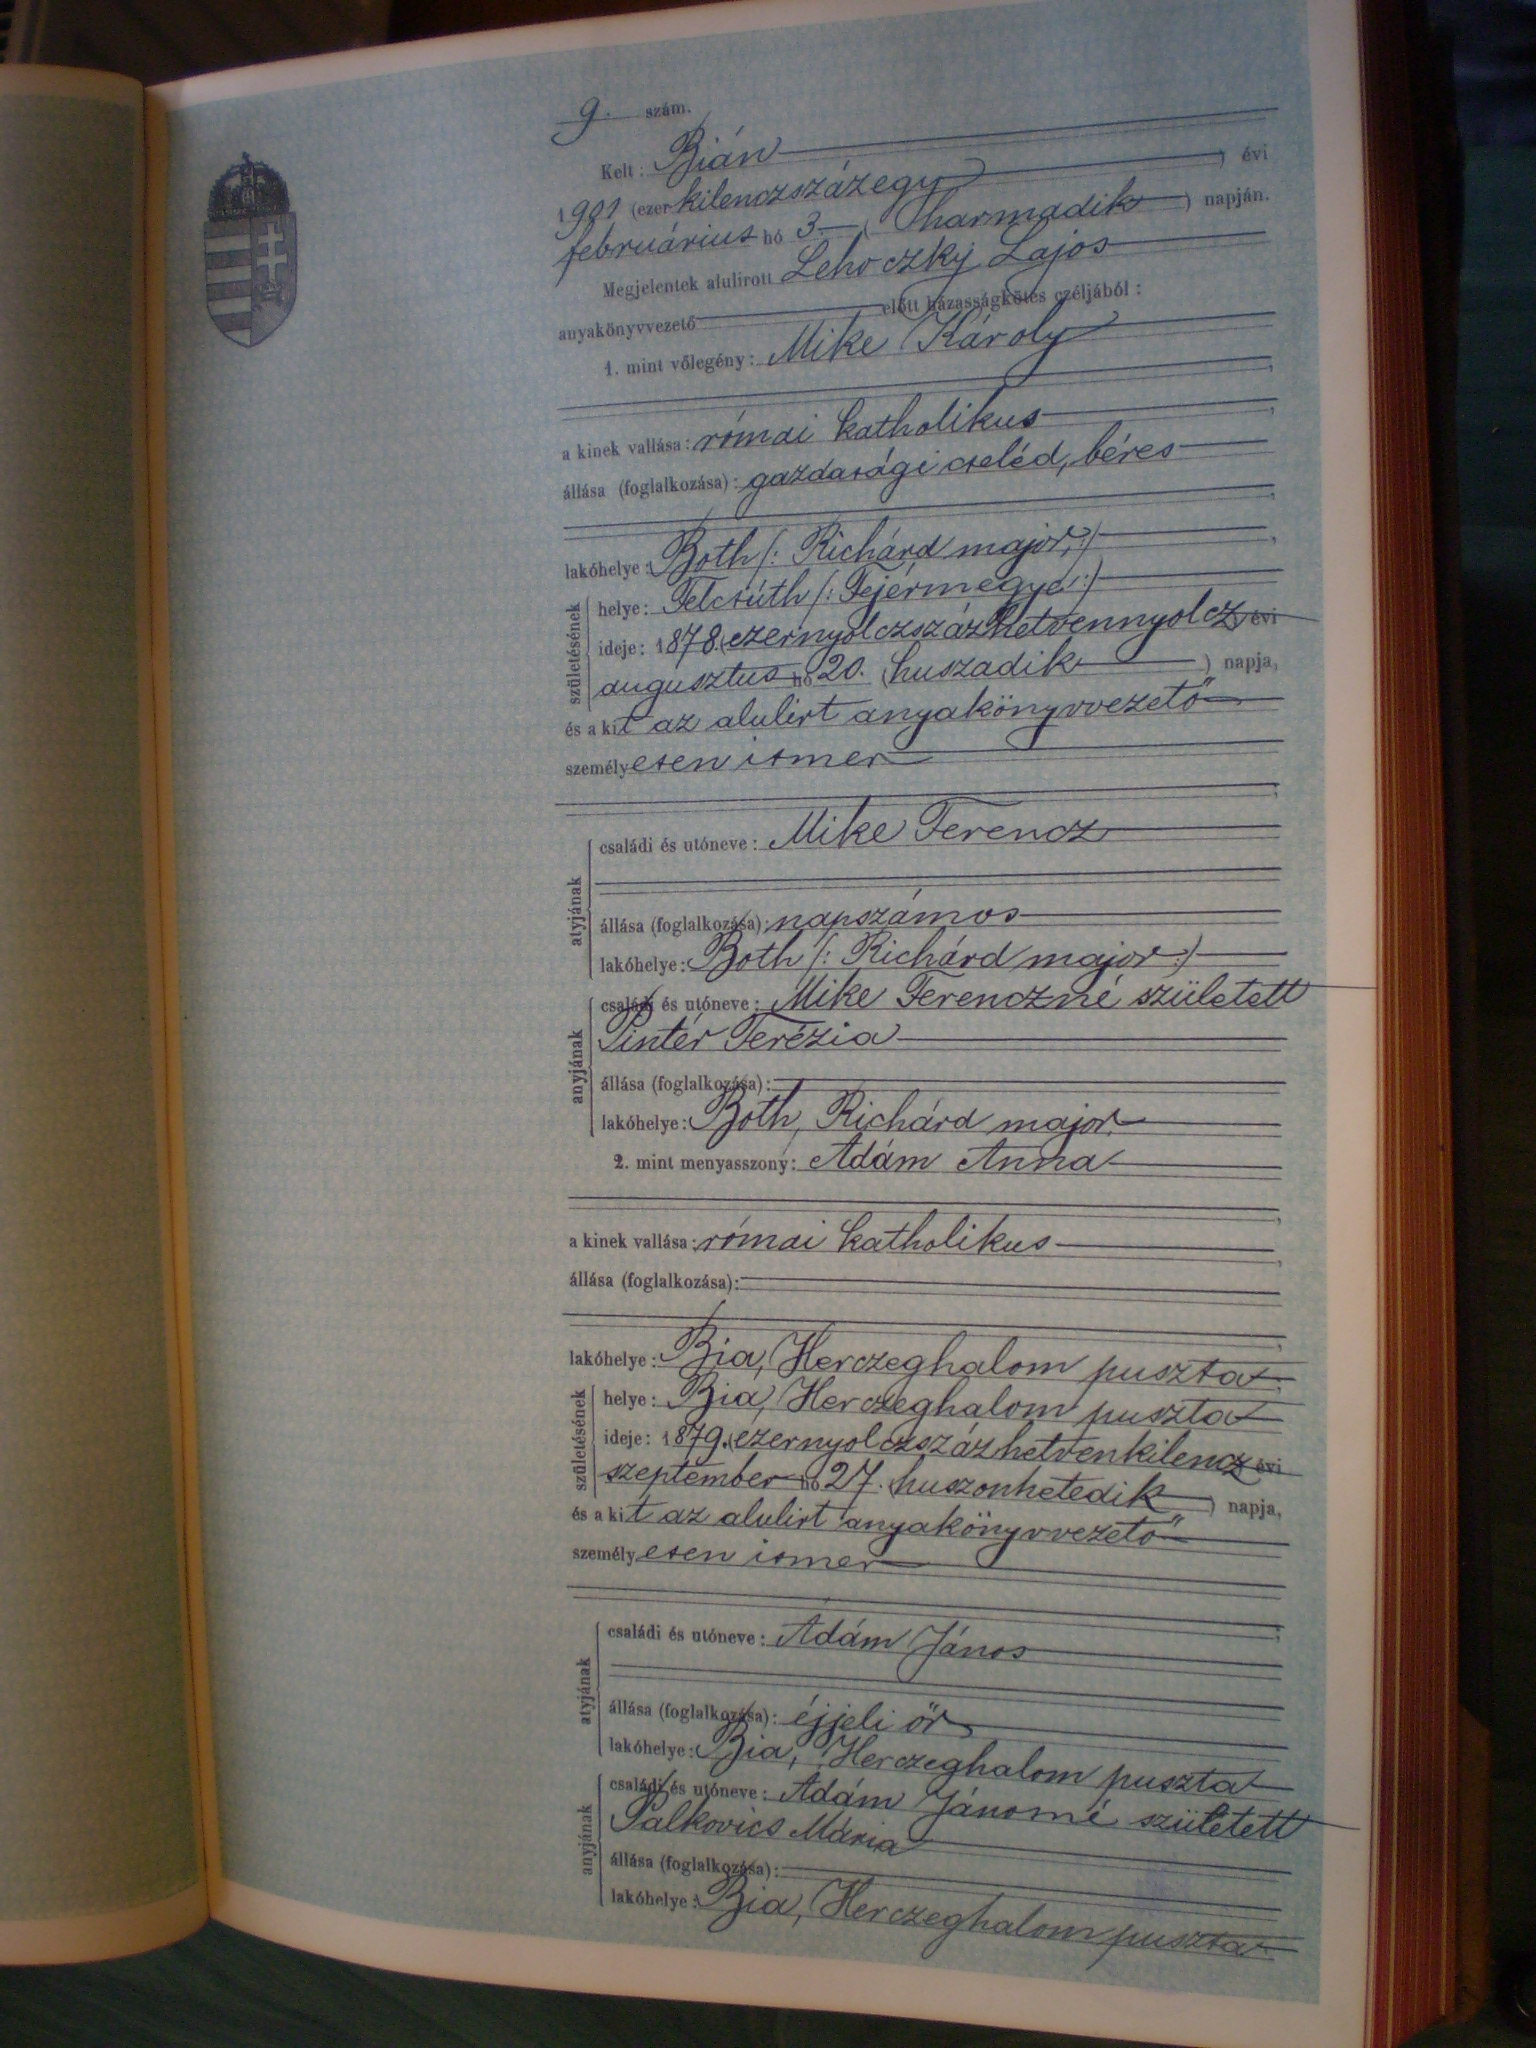 9. szám.
Kelt: Bián
1901 (ezer kilenczszázegy) évi
február​ius hó 3. (harmadik) napján.
Megjelentek alulirott Lehoczky Lajos
anyakönyvvezető előtt házasságkötés czéljából:
1. mint vőlegény: Mike Károly
a kinek vallása: római katholikus
állása (foglalkozása): gazdasági cseléd, béres
lakóhelye: Both (: Richárd major :)
születésének
helye: Felcsúth (: Fejérmegye :)
ideje: 1878. (ezernyolczszázhetvennyolcz) évi
augusztus hó 20. (huszadik) napja,
és a kit az alulirt anyakönyvvezető
személyesen ismer
atyjának
családi és utóneve: Mike Ferencz
állása (foglalkozása): napszámos
lakóhelye: Both (: Richárd major :)
anyjának
családi és utóneve: Mike Ferenczné született
Pintér Terézia
állása (foglalkozása):
lakóhelye: Both, Richárd major
2. mint menyasszony: Adám Anna
a kinek vallása: római katholikus
állása (foglalkozása):
lakóhelye: Bia, Herczeghalom puszta
születésének
helye: Bia, Herczeghalom puszta
ideje: 1879. (ezernyolczszázhetvenkilencz) évi
szeptember hó 27. (huszonhetedik) napja,
és a kit az alulirt anyakönyvvezető
személyesen ismer
atyjának
családi és utóneve: Adám János
állása (foglalkozása): éjjeli őr
lakóhelye: Bia, Herczeghalom puszta
anyjának
családi és utóneve: Adám Jánosné született
Palkovics Mária
állása (foglalkozása):
lakóhelye: Bia, Herczeghalom puszta